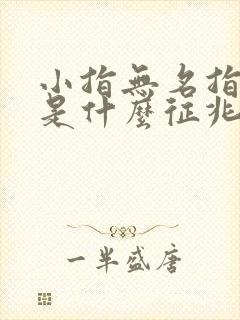 小指無名指
是什麼征兆
一半盛唐